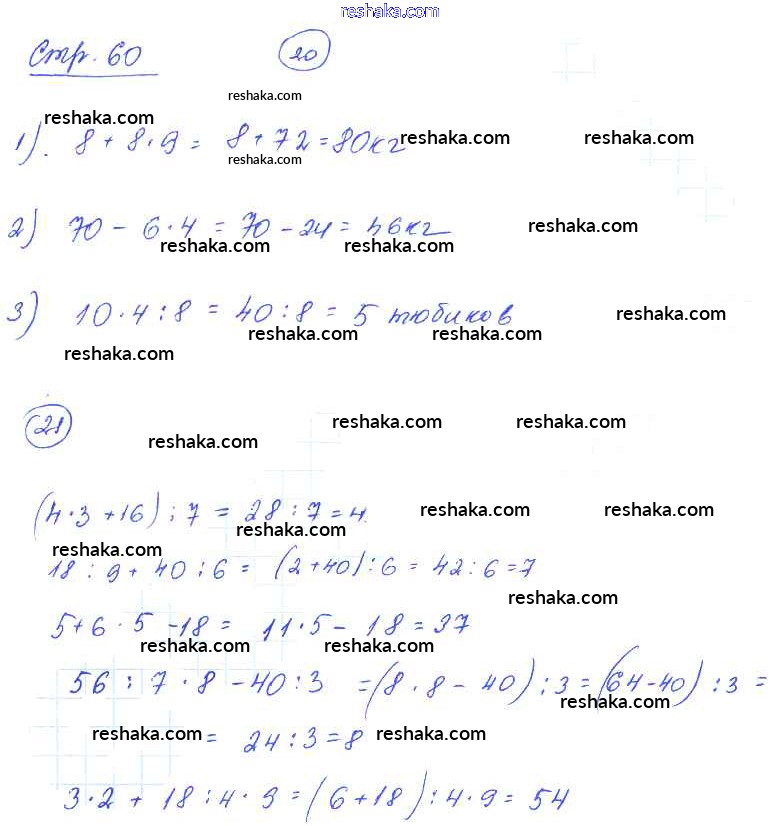 reshaka.com
Стр. 60 20
reshaka.com
reshaka.com
1). 8 + 8·9 = 8 + 72 = 80кг
reshaka.com reshaka.com
reshaka.com
2) 70 - 6·4 = 70 - 24 = 46кг
reshaka.com
reshaka.com reshaka.com
3) 10·4:8 = 40:8 = 5 тюбиков
reshaka.com
reshaka.com reshaka.com
reshaka.com
21
reshaka.com reshaka.com
reshaka.com
(4·3 +16) : 7 = 28 : 7 = 4.
reshaka.com reshaka.com
reshaka.com
reshaka.com
18 : 9 + 40 : 6 = (2+40) : 6 = 42 : 6 = 7
reshaka.com
5+6·5 -18 = 11·5 - 18 = 37
reshaka.com reshaka.com
56 : 7·8 - 40 : 3 = (8·8 - 40) : 3 = (64-40) : 3 =
reshaka.com
= 24 : 3 = 8
reshaka.com reshaka.com
3·2 + 18 : 4·9 = (6+18) : 4·9 = 54